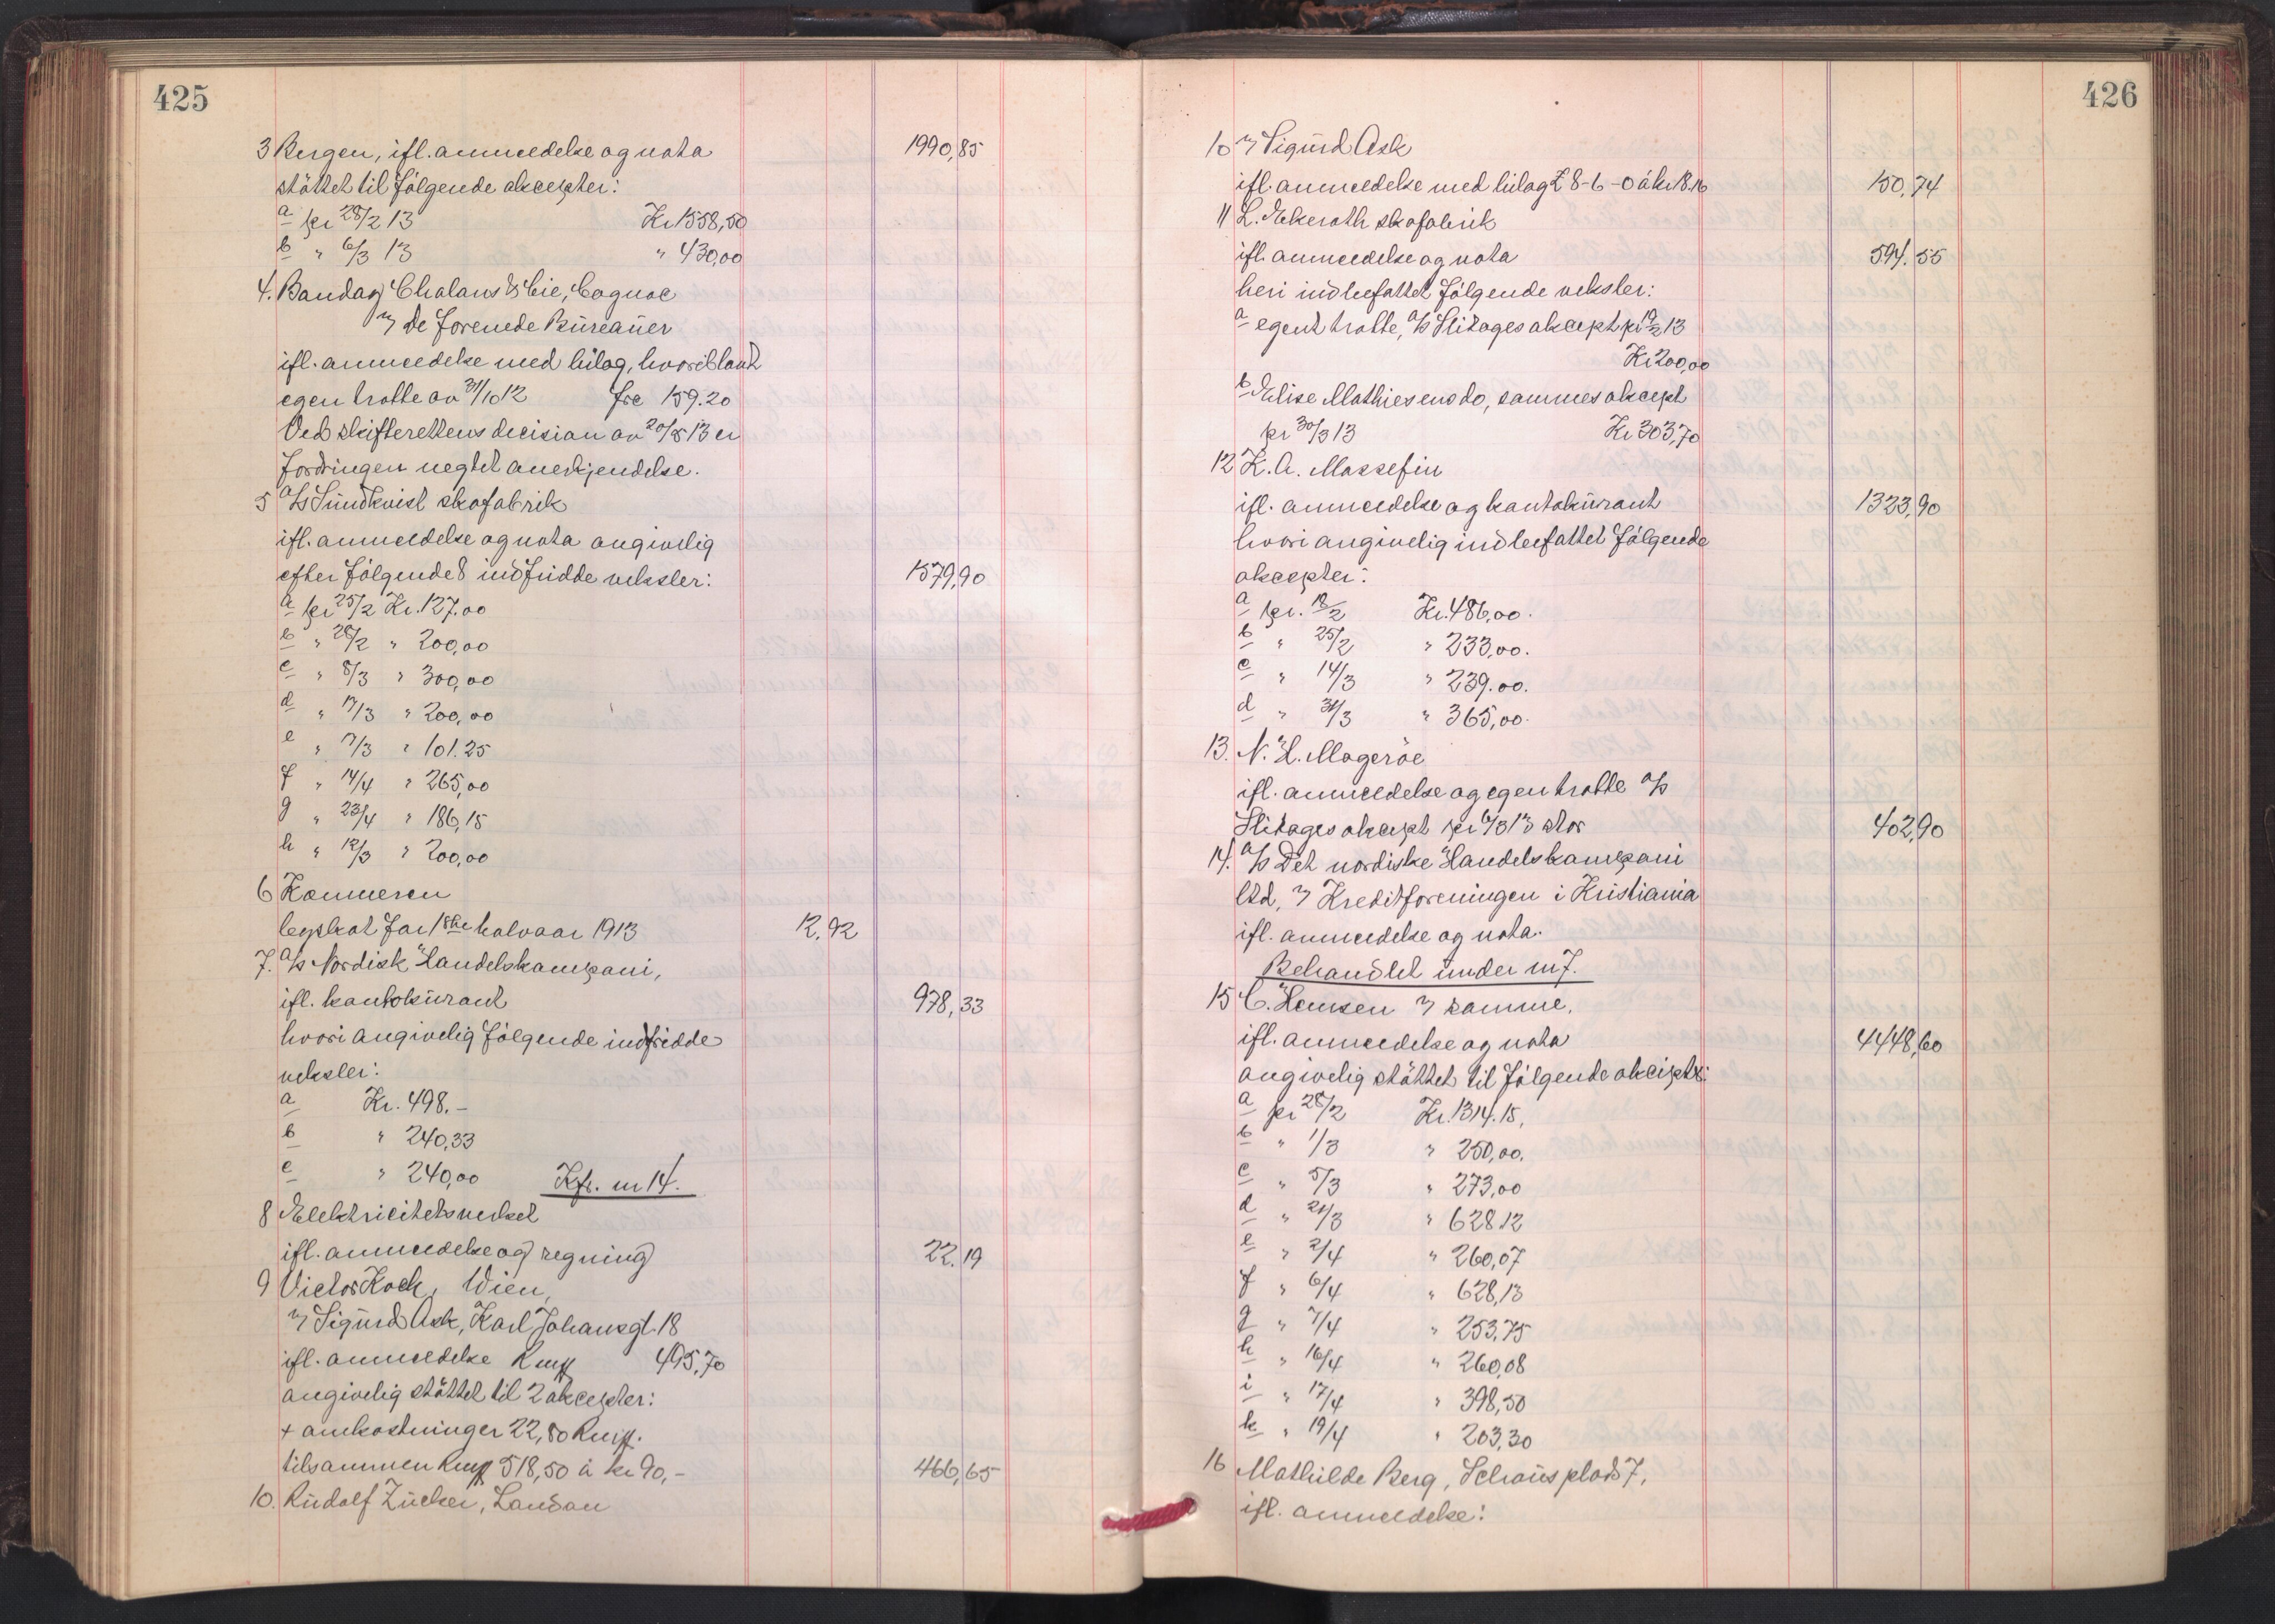 425
3 Bergen, ifl. anmeldelse og nota 1990,85
støttet til følgende aksepter:
a pr 28/2 13 Kr 1558,50
b " 6/3 13 " 430,00
4. Bandag Chalans & Cie, Cognac
v/ De forenede Bureauer
ifl. anmeldelse med bilag, hvoriblant
egen tratte av 31/10 12 frc 159.20
Ved skifterettens decision av 20/8 13 er
fordringen negtet anerkjendelse.
5 A/S Sundkvist skofabrik
ifl. anmeldelse og nota angivelig
efter følgende 8 indfridde veksler: 1579,90
a pr 25/2 Kr. 127.00
b " 28/2 " 200,00
c " 8/3 " 300,00
d " 17/3 " 200,00
e " 7/3 " 101.25
f " 14/4 " 265,00
g " 23/4 " 186,15
h " 12/3 " 200,00
6 Kæmneren
byskat for 1ste halvaar 1913 12.92
7. A/S Nordisk Handelskompani,
ifl. kontokurant 978,33
hvori angivelig følgende indfridde
veksler:
a Kr. 498.-
b " 240,33
c " 240,00 Kfr. nr 14.
8 Elektricitetsverket
ifl. anmeldelse og regning 22.19
9 Victor Koch, Wien,
v/ Sigurd Ask, Karl Johansgt. 18
ifl. anmeldelse Rmk 495,70
angivelig støttet til 2 aksepter:
+ omkostninger 22,80 Rmk.
tilsammen Rmk 518,50 à kr 90,- 466,65
10. Rudolf Zucker, Landau
426
10 v/ Sigurd Ask
ifl. anmeldelse med bilag £ 8-6-0 à kr 18.16 150,74
11 L. Ekeroth skofabrik
ifl. anmeldelse og nota 594.55
heri indbefattet følgende veksler:
a egen tratte, A/S Slitages aksept pr 19/2 13
Kr 200,00
b Elise Mathiesens do, sammes aksept
pr 30/3 13 Kr 303,70
12 K. A. Massefin
ifl. anmeldelse og kontokurant 1323,90
hvori angivelig indbefattet følgende
aksepter:
a pr. 18/2 Kr. 486,00.
b " 25/2 " 233,00.
c " 14/3 " 239.00.
d " 31/3 " 365,00.
13. N. H. Magerøe
ifl. anmeldelse og egen tratte A/S
Slitages aksept pr 6/3 13 stor 402,90
14. A/S Det nordiske Handelskompani
Ltd, v/ Kreditforeningen i Kristiania
ifl. anmeldelse og nota.
Behandlet under nr 7.
15 C. Hansen v/ samme.
ifl. anmeldelse og nota 4448,60
angivelig støttet til følgende aksepter:
a pr 28/2 Kr. 1314.15,
b " 1/3 " 250,00.
c " 5/3 " 273,00
d " 21/3 " 628.12
e " 2/4 " 260,07
f " 6/4 " 628,13
g " 7/4 " 253,75
h " 16/4 " 260,08
i " 17/4 " 398,50
k " 19/4 " 203,30
16 Mathilde Berg, Schous plads 7,
ifl. anmeldelse: